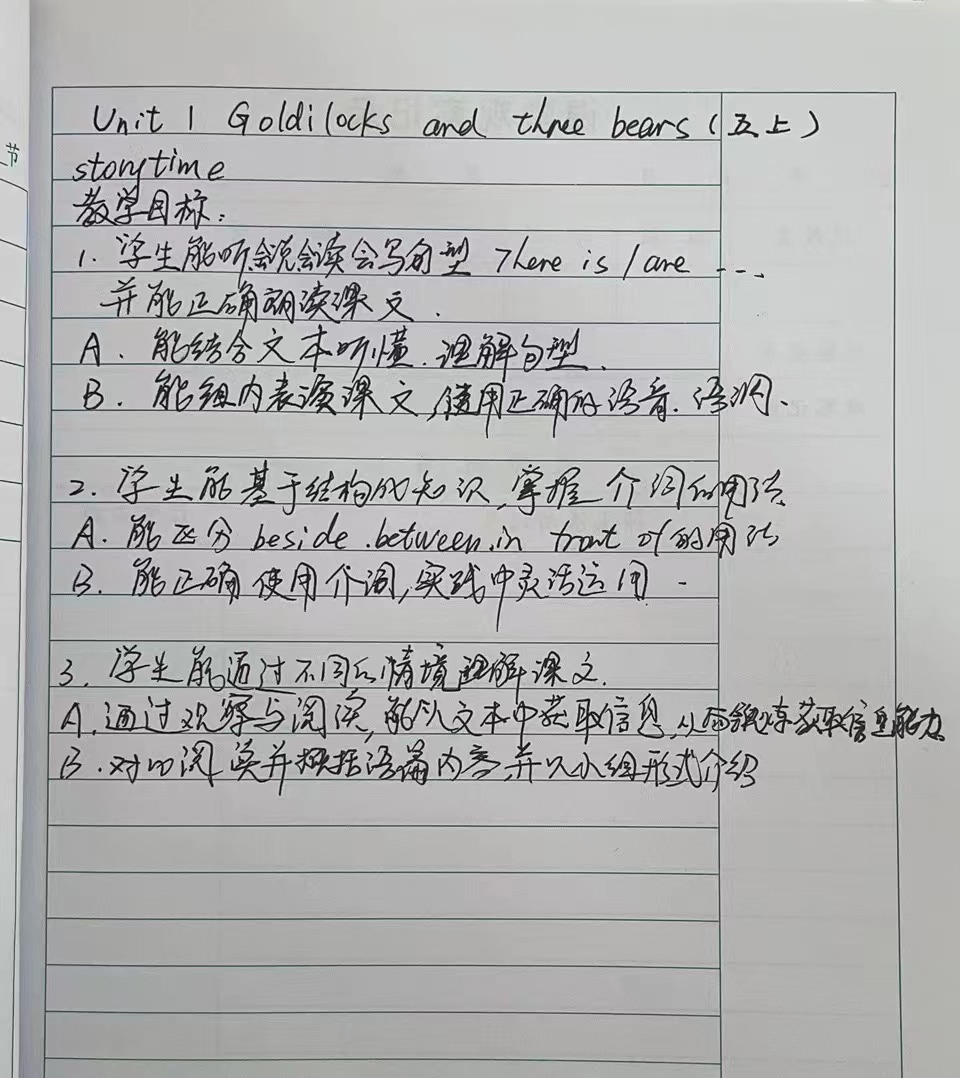 节
Unit 1 Goldilocks and three bears (五上)
storytime
教学目标:
1. 学生能听会说会读会写句型 There is / are ....
并能正确朗读课文.
A. 能结合文本听懂.理解句型.
B. 能组内表演课文,使用正确的语音.语调.
2. 学生能基于结构的知识,掌握介词的用法
A. 能区分 beside.between.in front of的用法
B. 能正确使用介词,实践中灵活运用.
3. 学生能通过不同的情境理解课文.
A.通过观察与阅读,能从文本中获取信息,从而锻炼获取信息能力
B.对阅读并概括语篇内容,并以小组形式介绍